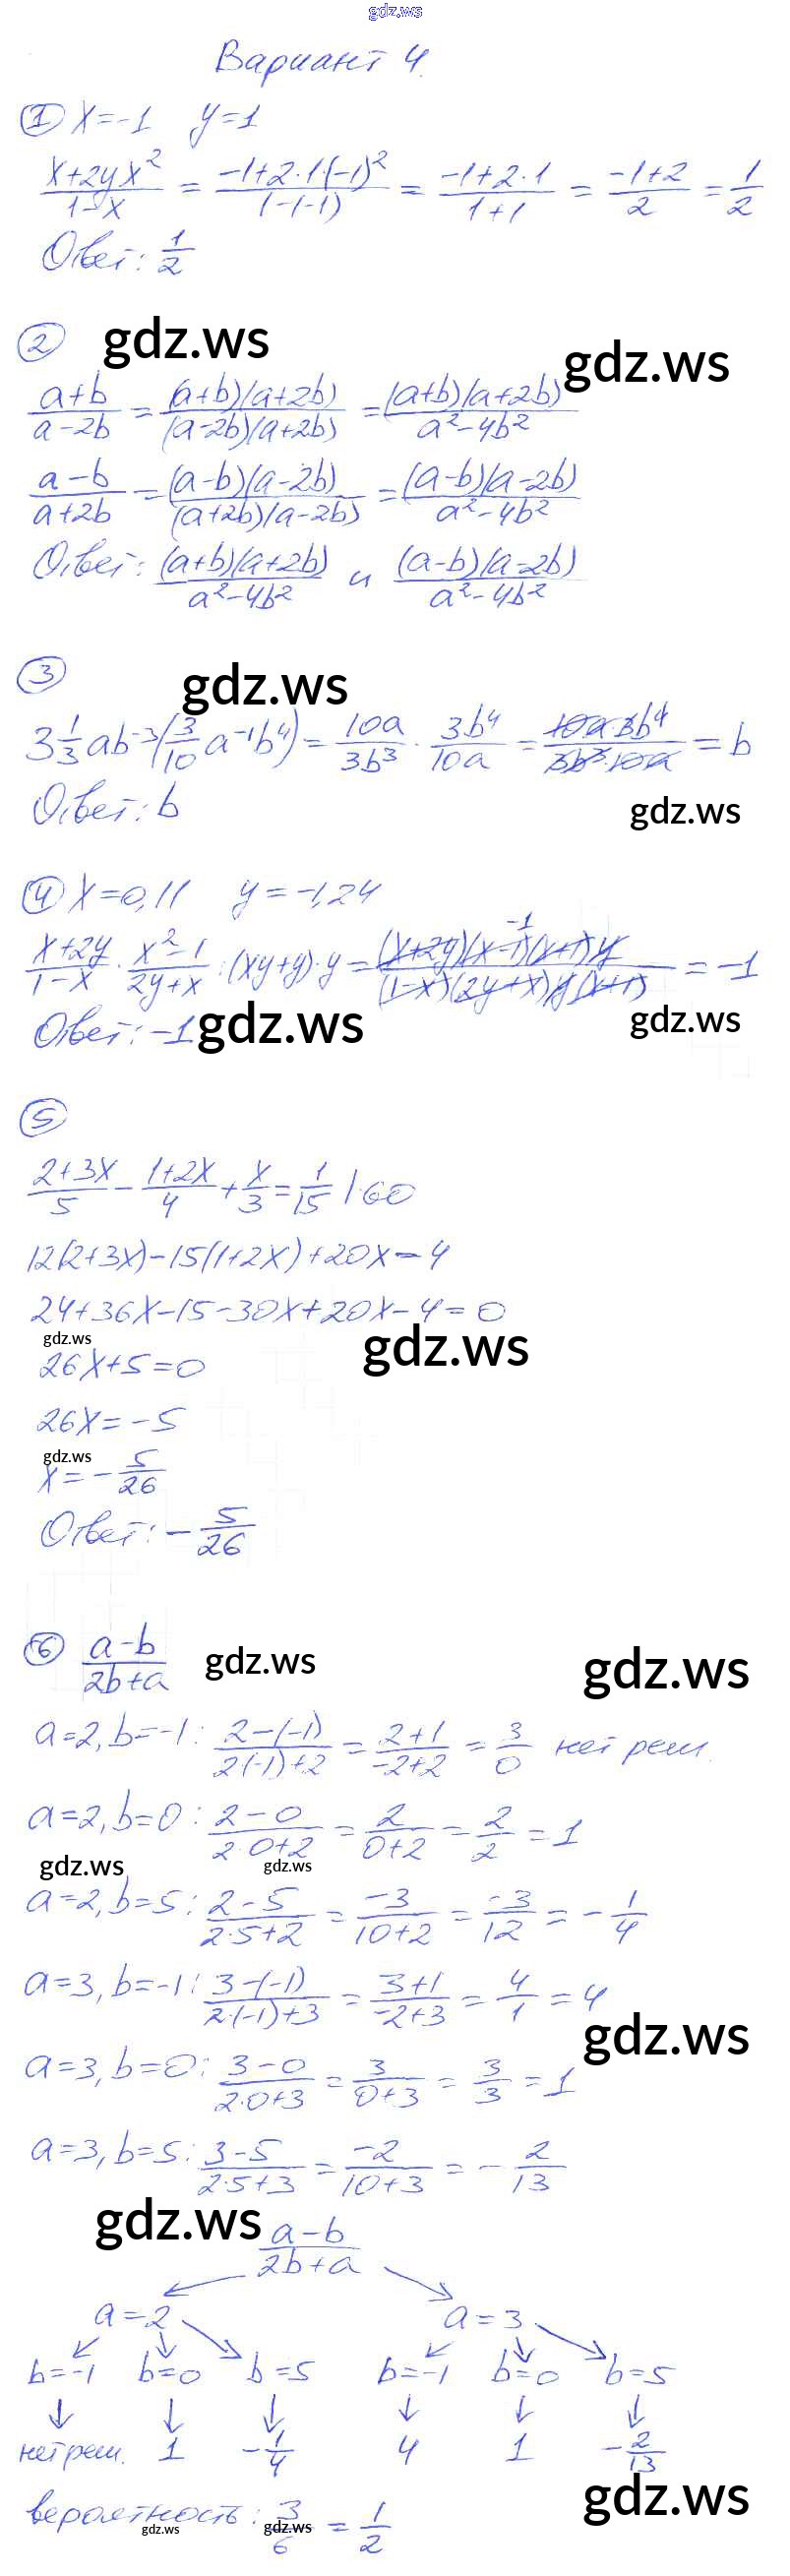 gdz.ws
Вариант 4.
① x=-1 y=1
(x+2yx²)/(1-x) = (-1+2·1·(-1)²)/(1-(-1)) = (-1+2·1)/(1+1) = (-1+2)/2 = 1/2
Ответ: 1/2
② gdz.ws
gdz.ws
(a+b)/(a-2b) = ((a+b)(a+2b))/((a-2b)(a+2b)) = ((a+b)(a+2b))/(a²-4b²)
(a-b)/(a+2b) = ((a-b)(a-2b))/((a+2b)(a-2b)) = ((a-b)(a-2b))/(a²-4b²)
Ответ: ((a+b)(a+2b))/(a²-4b²) и ((a-b)(a-2b))/(a²-4b²)
③ gdz.ws
3 1/3 ab⁻³(3/10 a⁻¹b⁴) = 10a/3b³ · 3b⁴/10a = (10a·3b⁴)/(3b³·10a) = b
Ответ: b gdz.ws
④ x=0,11 y=-1,24
(x+2y)/(1-x) · (x²-1)/(2y+x) : (xy+y)·y = ((x+2y)(x-1)(x+1)y)/((1-x)(2y+x)y(x+1)) = -1
-1
Ответ: -1 gdz.ws gdz.ws
⑤
(2+3x)/5 - (1+2x)/4 + x/3 = 1/15 |·60
12(2+3x)-15(1+2x)+20x=4
24+36x-15-30x+20x-4=0
gdz.ws gdz.ws
26x+5=0
26x=-5
gdz.ws
x=-5/26
Ответ: -5/26
⑥ (a-b)/(2b+a) gdz.ws gdz.ws
a=2, b=-1: (2-(-1))/(2(-1)+2) = (2+1)/(-2+2) = 3/0 нет реш.
a=2, b=0: (2-0)/(2·0+2) = 2/(0+2) = 2/2 = 1
gdz.ws gdz.ws
a=2, b=5: (2-5)/(2·5+2) = -3/(10+2) = -3/12 = -1/4
a=3, b=-1: (3-(-1))/(2·(-1)+3) = (3+1)/(-2+3) = 4/1 = 4
gdz.ws
a=3, b=0: (3-0)/(2·0+3) = 3/(0+3) = 3/3 = 1
a=3, b=5: (3-5)/(2·5+3) = -2/(10+3) = -2/13
gdz.ws (a-b)/(2b+a)
a=2 a=3
b=-1 b=0 b=5 b=-1 b=0 b=5
нет реш. 1 -1/4 4 1 -2/13
gdz.ws
вероятность: 3/6 = 1/2
gdz.ws gdz.ws